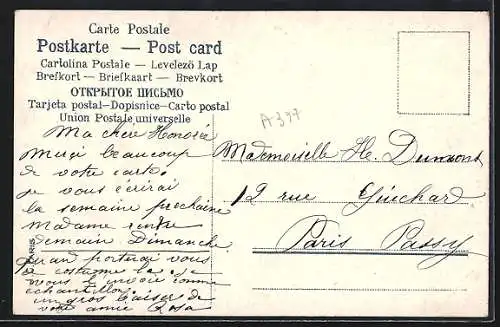 Carte Postale
Postkarte — Post card
Cartolina Postale — Levelező Lap
Brefkort — Briefkaart — Brevkort
ОТКРЫТОЕ ПИСЬМО
Tarjeta postal—Dopisnice—Carto postal
Union Postale universelle
A 397
Ma chère Honorée
Merci beaucoup
de votre carte
je vous écrirai
la semaine prochaine
Madame rentre
demain Dimanche
quand vous
costume la
vous l'envoie comme
échantillon
un gros baiser de
votre amie Rosa
Mademoiselle He. Dumont
12 rue Guichard
Paris Passy
PARIS